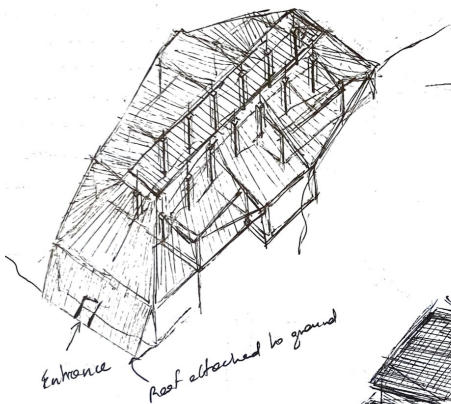 Entrance
Roof attached to ground